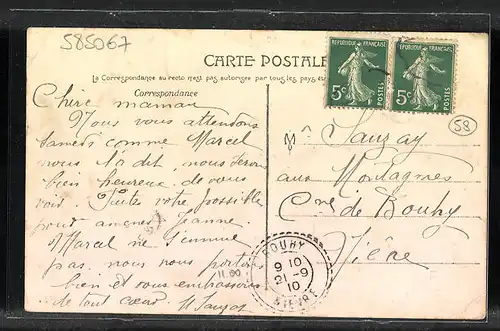 585067
CARTE POSTALE
La Correspondance au recto n'est pas autorisée par tous les pays
Correspondance
RÉPUBLIQUE FRANÇAISE
5c
POSTES
RÉPUBLIQUE FRANÇAISE
5c
POSTES
58
Chère maman
Nous vous attendons
Samedi comme Marcel
vous l'a dit nous seron
bien heureux de vous
voir. Faite votre possible
pour amener Jeanne
Marcel ne s'ennuie
pas. nous nous portons
bien et vous embrassons
de tout cœur
Mme Sauzay
aux Montagnes
Cne de Bouhy
Nièvre
BOUHY
9 10
21-9
10
NIÈVRE
11.00